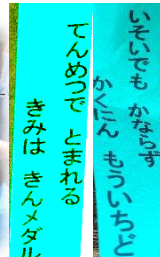 いそいでも かならず
かくにん もういちど
てんめつで とまれる
きみは きんメダル